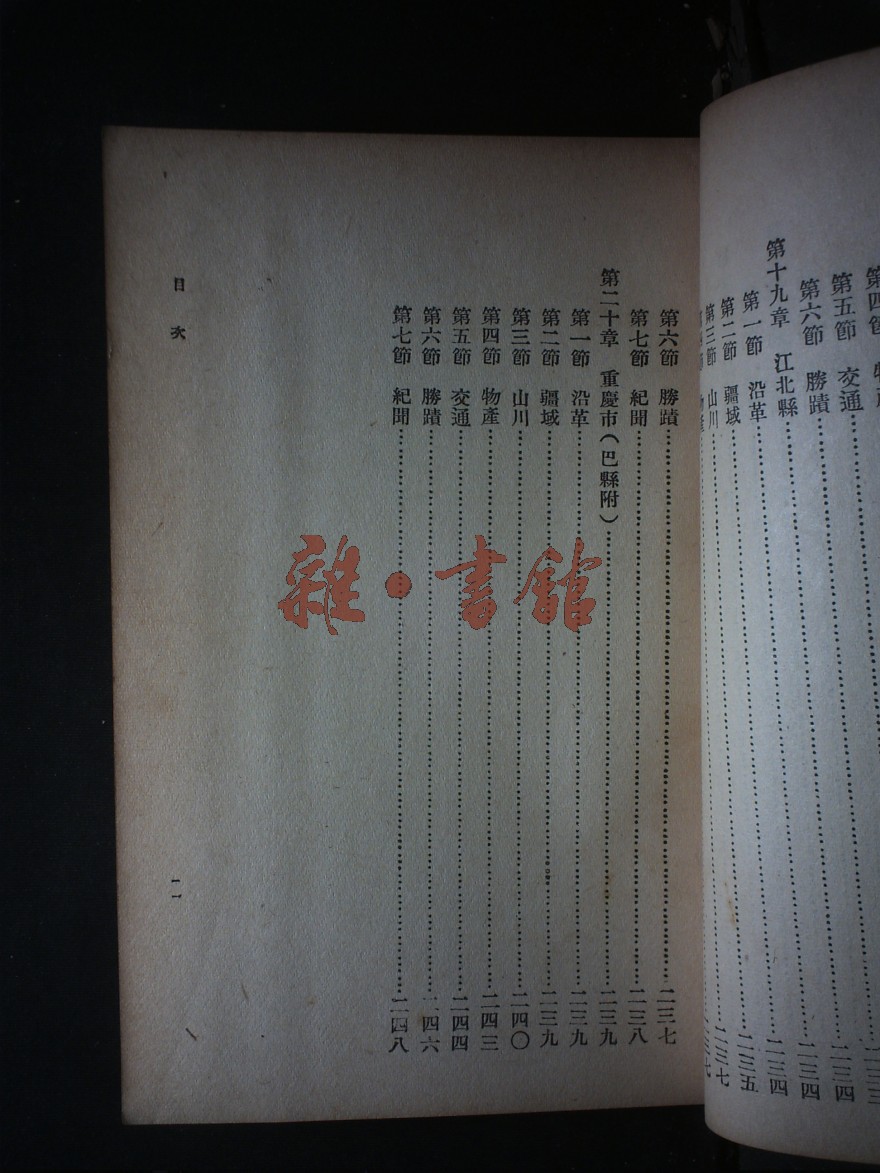 第四節 物產……二三三
第五節 交通……二三四
第六節 勝蹟……二三四
第十九章 江北縣……二三四
第一節 沿革……二三五
第二節 疆域……二三七
第三節 山川……二三七
物產
第六節 勝蹟……二三七
第七節 紀聞……二三八
第二十章 重慶市(巴縣附)……二三九
第一節 沿革……二三九
第二節 疆域……二三九
第三節 山川……二四〇
第四節 物產……二四三
第五節 交通……二四四
第六節 勝蹟……二四六
第七節 紀聞……二四八
目次
一一
雜·書館